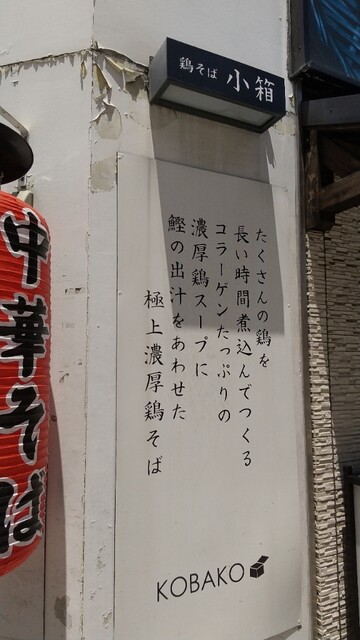 鶏そば 小箱
たくさんの鶏を
長い時間煮込んでつくる
コラーゲンたっぷりの
濃厚鶏スープに
鰹の出汁をあわせた
極上濃厚鶏そば
KOBAKO
中華そば